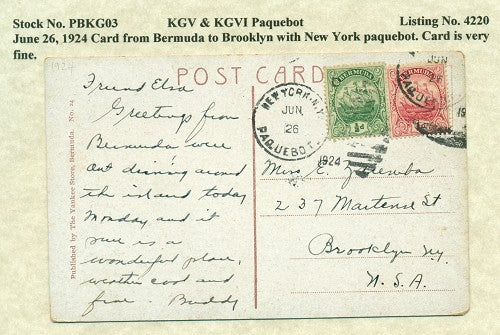 Stock No. PBKG03 KGV & KGVI Paquebot Listing No. 4220
June 26, 1924 Card from Bermuda to Brooklyn with New York paquebot. Card is very
fine.
1924
POST CARD
Friend Elsa
Greetings from
Bermuda were
out driving around
the island today
Monday and it
sure is a
wonderful place,
weather cool and
fine. Buddy
Published by The Yankee Store, Bermuda. No. 24
NEW YORK, N.Y.
JUN
26
1924
PAQUEBOT
BERMUDA
½d
BERMUDA
JUN
PAQUEBOT
Miss E.
237 Martense St
Brooklyn Ny.
U.S.A.